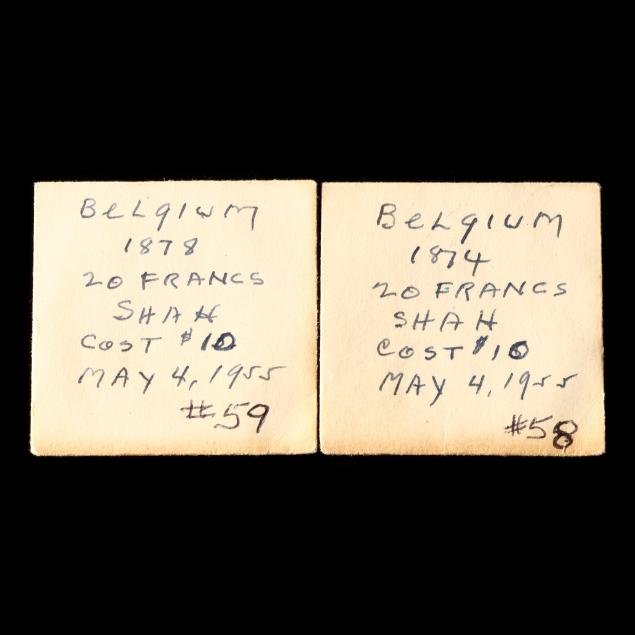 BeLgIUM
1878
20 FRANCS
SHAH
COST $10
MAY 4, 1955
#59
BeLgIUM
1874
20 FRANCS
SHAH
COST $10
MAY 4, 1955
#58